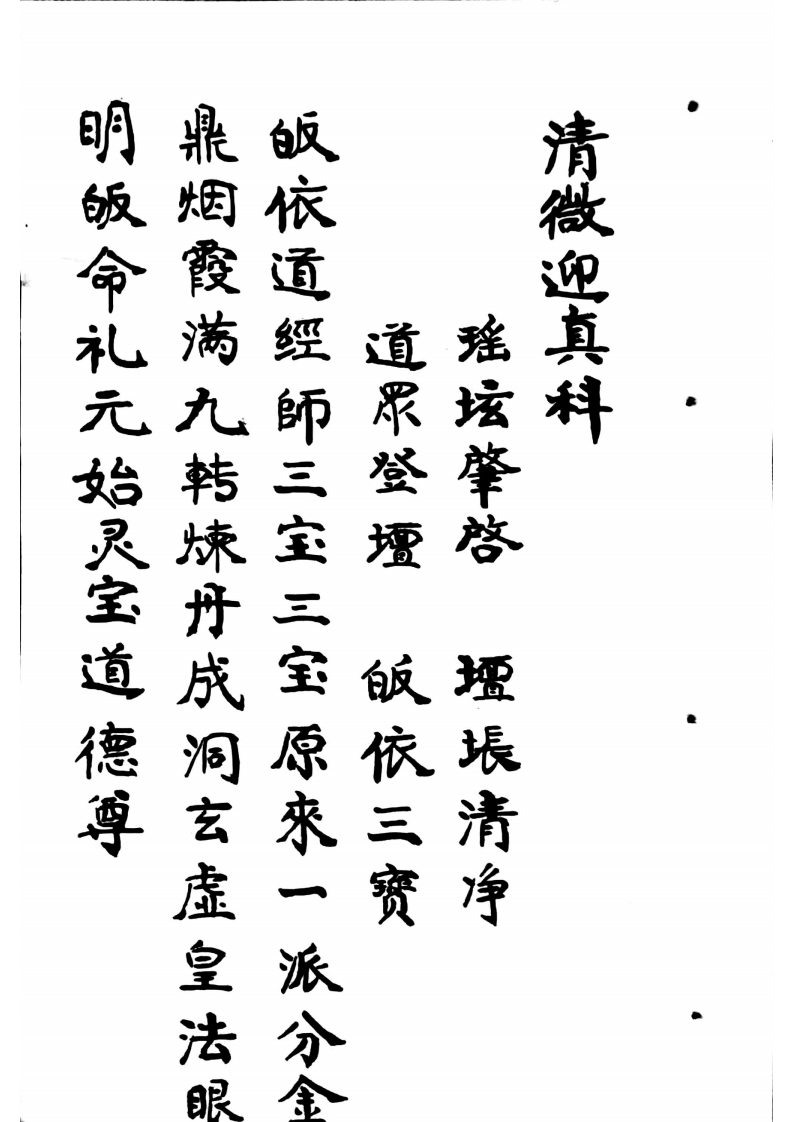 清微迎真科
瑶坛肇啓　壇場清净
道眾登壇　皈依三寳
皈依道經師三宝三宝原來一派分金
鼎烟霞满九轉煉丹成洞玄虚皇法眼
明皈命礼元始灵宝道德尊